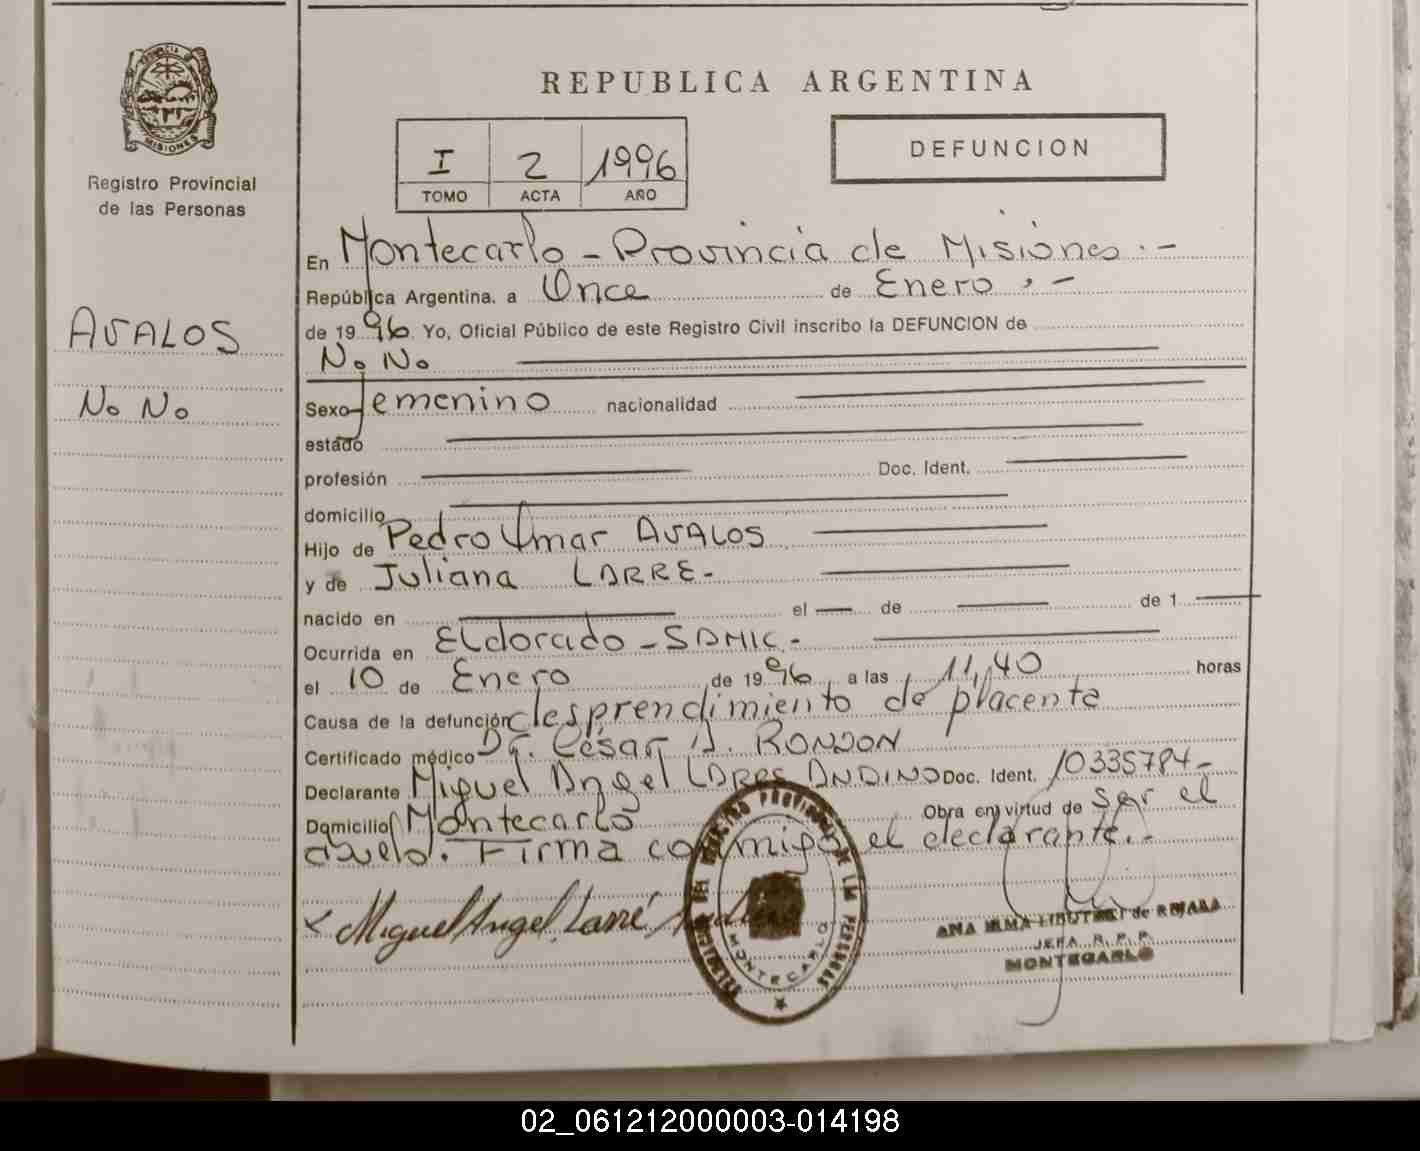 PROVINCIA DE
MISIONES
Registro Provincial
de las Personas
AVALOS
No No
REPUBLICA ARGENTINA
I 2 1996
TOMO ACTA AÑO
DEFUNCION
En Montecarlo - Provincia de Misiones.-
República Argentina. a Once de Enero.-
de 1996. Yo, Oficial Público de este Registro Civil inscribo la DEFUNCION de
No No
Sexo femenino nacionalidad
estado
profesión Doc. Ident.
domicilio
Hijo de Pedro Omar AVALOS
y de Juliana LARRE-
nacido en el de de 1
Ocurrida en Eldorado - SAMIC -
el 10 de Enero de 1996, a las 11,40 horas
Causa de la defunción desprendimiento de placenta
Certificado médico Dr. César A. RONDON
Declarante Miguel Angel LARRE ANDINO Doc. Ident. 10335784-
Domicilio Montecarlo Obra en virtud de ser el
abuelo. Firma conmigo el declarante.-
Miguel Angel Larré
REGISTRO PROVINCIAL DE LAS PERSONAS
MONTECARLO
JEFA R. P. P.
MONTECARLO
02_061212000003-014198